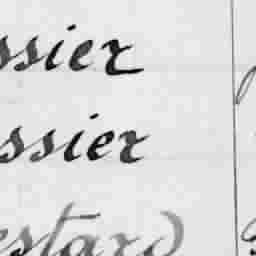 ssier
ssier
estard